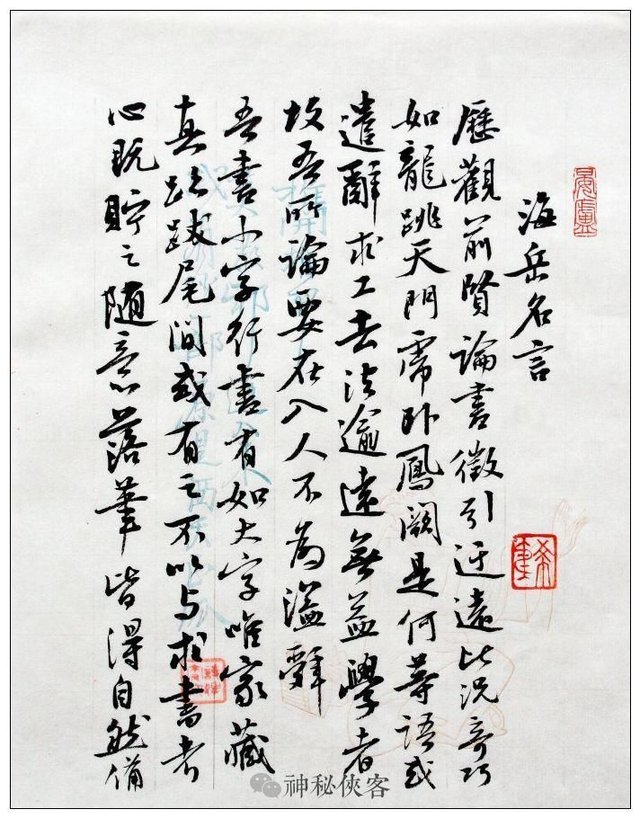 海岳名言
歷觀前賢論書徵引迂遠比況奇巧
如龍跳天門虎卧鳳闕是何等語或
遣辭求工去法逾遠無益學者
故吾所論要在入人不為溢辭
吾書小字行書有如大字唯家藏
真跡跋尾間或有之不以与求書者
心既貯之隨意落筆皆得自然備
神秘俠客